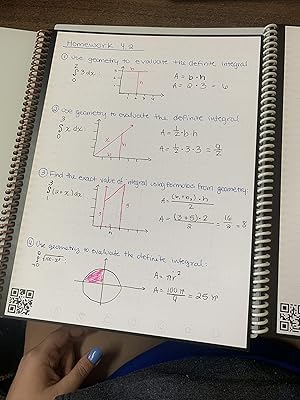 Homework 4.2
① Use geometry to evaluate the definite integral
2
∫ 3 dx
0
A = b · h
A = 2 · 3 = 6
② Use geometry to evaluate the definite integral
3
∫ x dx
0
A = 1/2 · b · h
A = 1/2 · 3 · 3 = 9/2
③ Find the exact value of integral using formulas from geometry:
3
∫ (2+x) dx
A = (h₁+h₂) · h / 2
A = (3+5) · 2 / 2 = 16/2 = 8
④ Use geometry to evaluate the definite integral:
0
∫
-10
A = πr²
A = 100π/4 = 25π